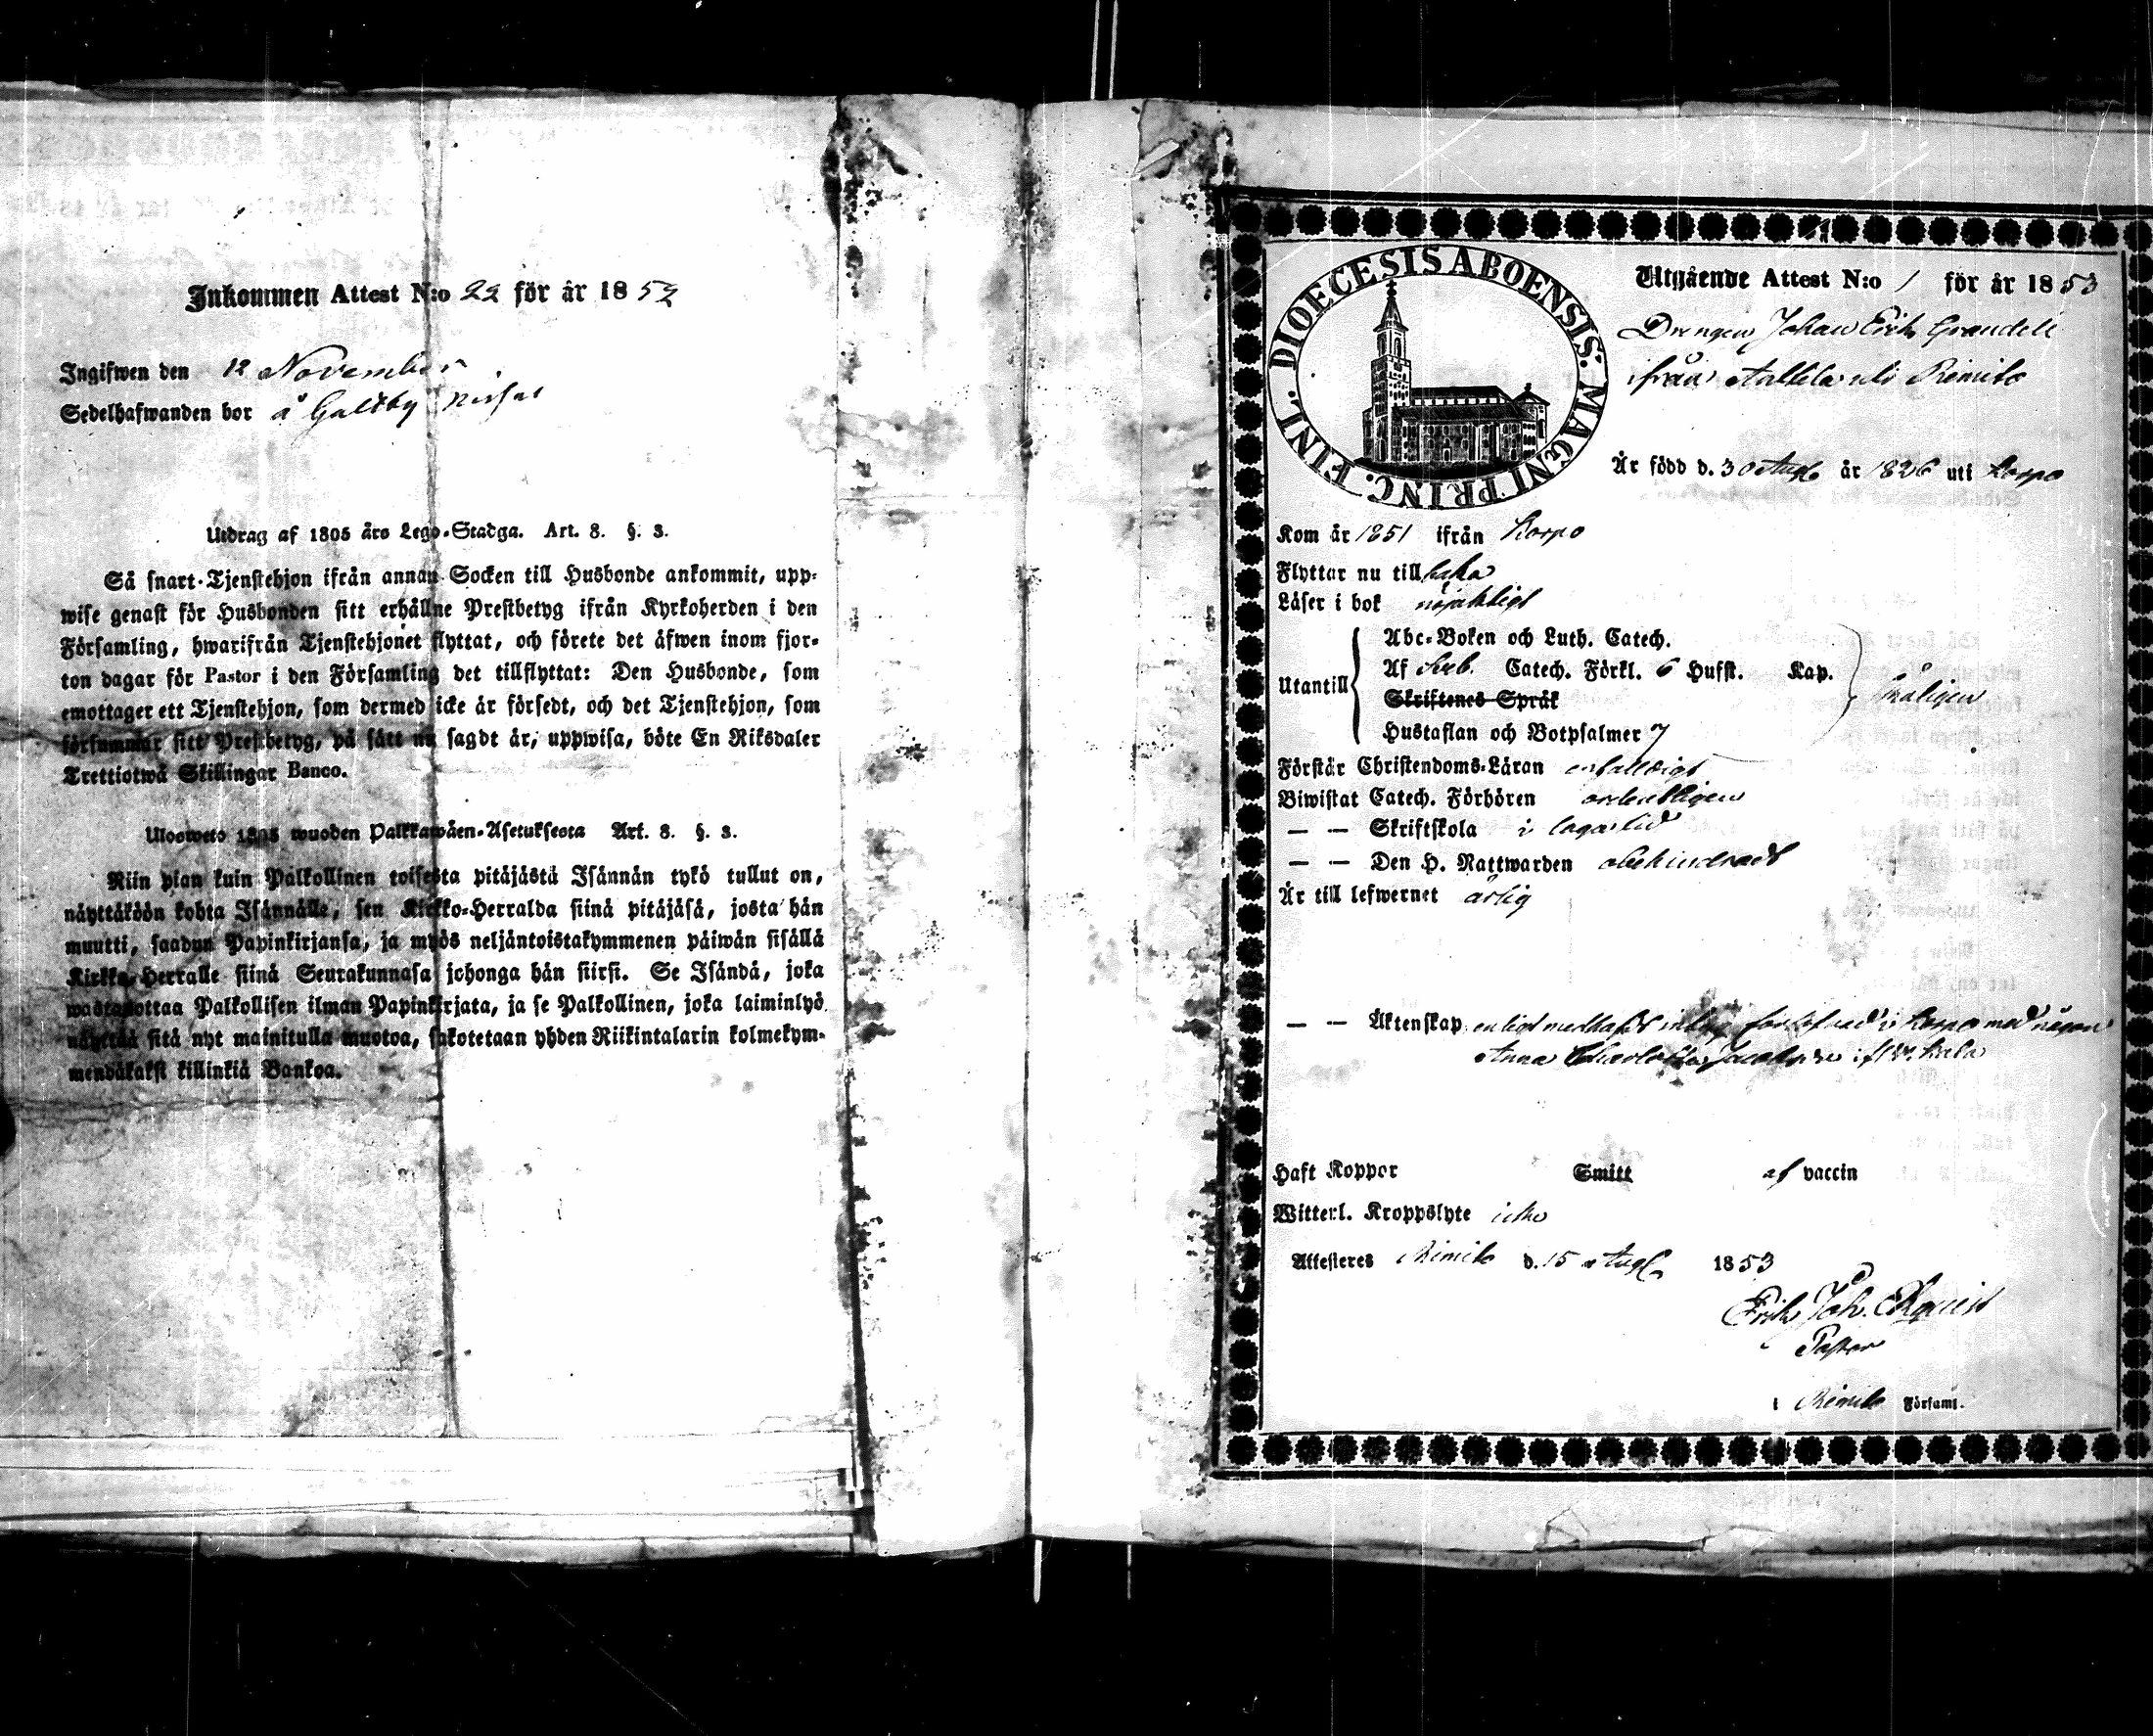 Inkommen Attest N:o 22 för år 1852
Ingifwen den 12 November
Sedelhafwanden bor å Galtby
Utdrag af 1805 års Lego-Stadga. Art. 8. §. 3.
Så snart Tjenstehjon ifrån annan Socken till Husbonde ankommit, upp-
wise genast för Husbonden sitt erhållne Prestbetyg ifrån Kyrkoherden i den
Församling, hwarifrån Tjenstehjonet flyttat, och förete det äfwen inom fjor-
ton dagar för Pastor i den Församling det tillflyttat: Den Husbonde, som
emottager ett Tjenstehjon, som dermed icke är försedt, och det Tjenstehjon, som
försummar sitt Prestbetyg, på sätt nu sagdt är, uppwisa, böte En Riksdaler
Trettiotwå Skillingar Banco.
Ulosweto 1805 wuoden Palkkawäen-Asetuksesta Art. 8. §. 3.
Niin pian kuin Palkollinen toisesta pitäjästä Isännän tykö tullut on,
näyttäköön kohta Isännälle, sen Kirkko-Herralda siinä pitäjäsä, josta hän
muutti, saadun Papinkirjansa, ja myös neljäntoistakymmenen päiwän sisällä
Kirkko-Herralle siinä Seurakunnasa johonga hän siirsi. Se Isändä, joka
wastanottaa Palkollisen ilman Papinkirjata, ja se Palkollinen, joka laiminlyö
näyttää sitä nyt mainitulla muotoa, sakotetaan yhden Riikintalarin kolmekym-
mendäkaksi killinkiä Bankoa.
DIOECESIS ABOENSIS. MAGNI PRINC. FINL.
Utgående Attest N:o 1 för år 1853
Drengen Johan Erik Grandell
ifrån uti Rimito
Är född d. 30 Aug. år 1826 uti Korpo
Kom år 1851 ifrån Korpo
Flyttar nu till baka
Läser i bok nöjaktligt
Utantill
Abc-Boken och Luth. Catech.
Af Sveb. Catech. Förkl. 6 Hufst. Kap.
Skriftenes Språk
Hustaflan och Botpsalmer 7
måtligen
Förstår Christendoms-Läran enfaldigt
Biwistat Catech. Förhören ordentligen
— — Skriftskola i laga tid
— — Den H. Nattwarden obehindradt
Är till lefwernet ärlig
— — Äktenskap enligt medhafdt i Korpo med
Anna Charlotta
Haft Koppor Smitt af vaccin
Witterl. Kroppslyte icke
Attesteres Rimito d. 15 Aug. 1853
Erik Joh.
Pastor
i Rimito Församl.